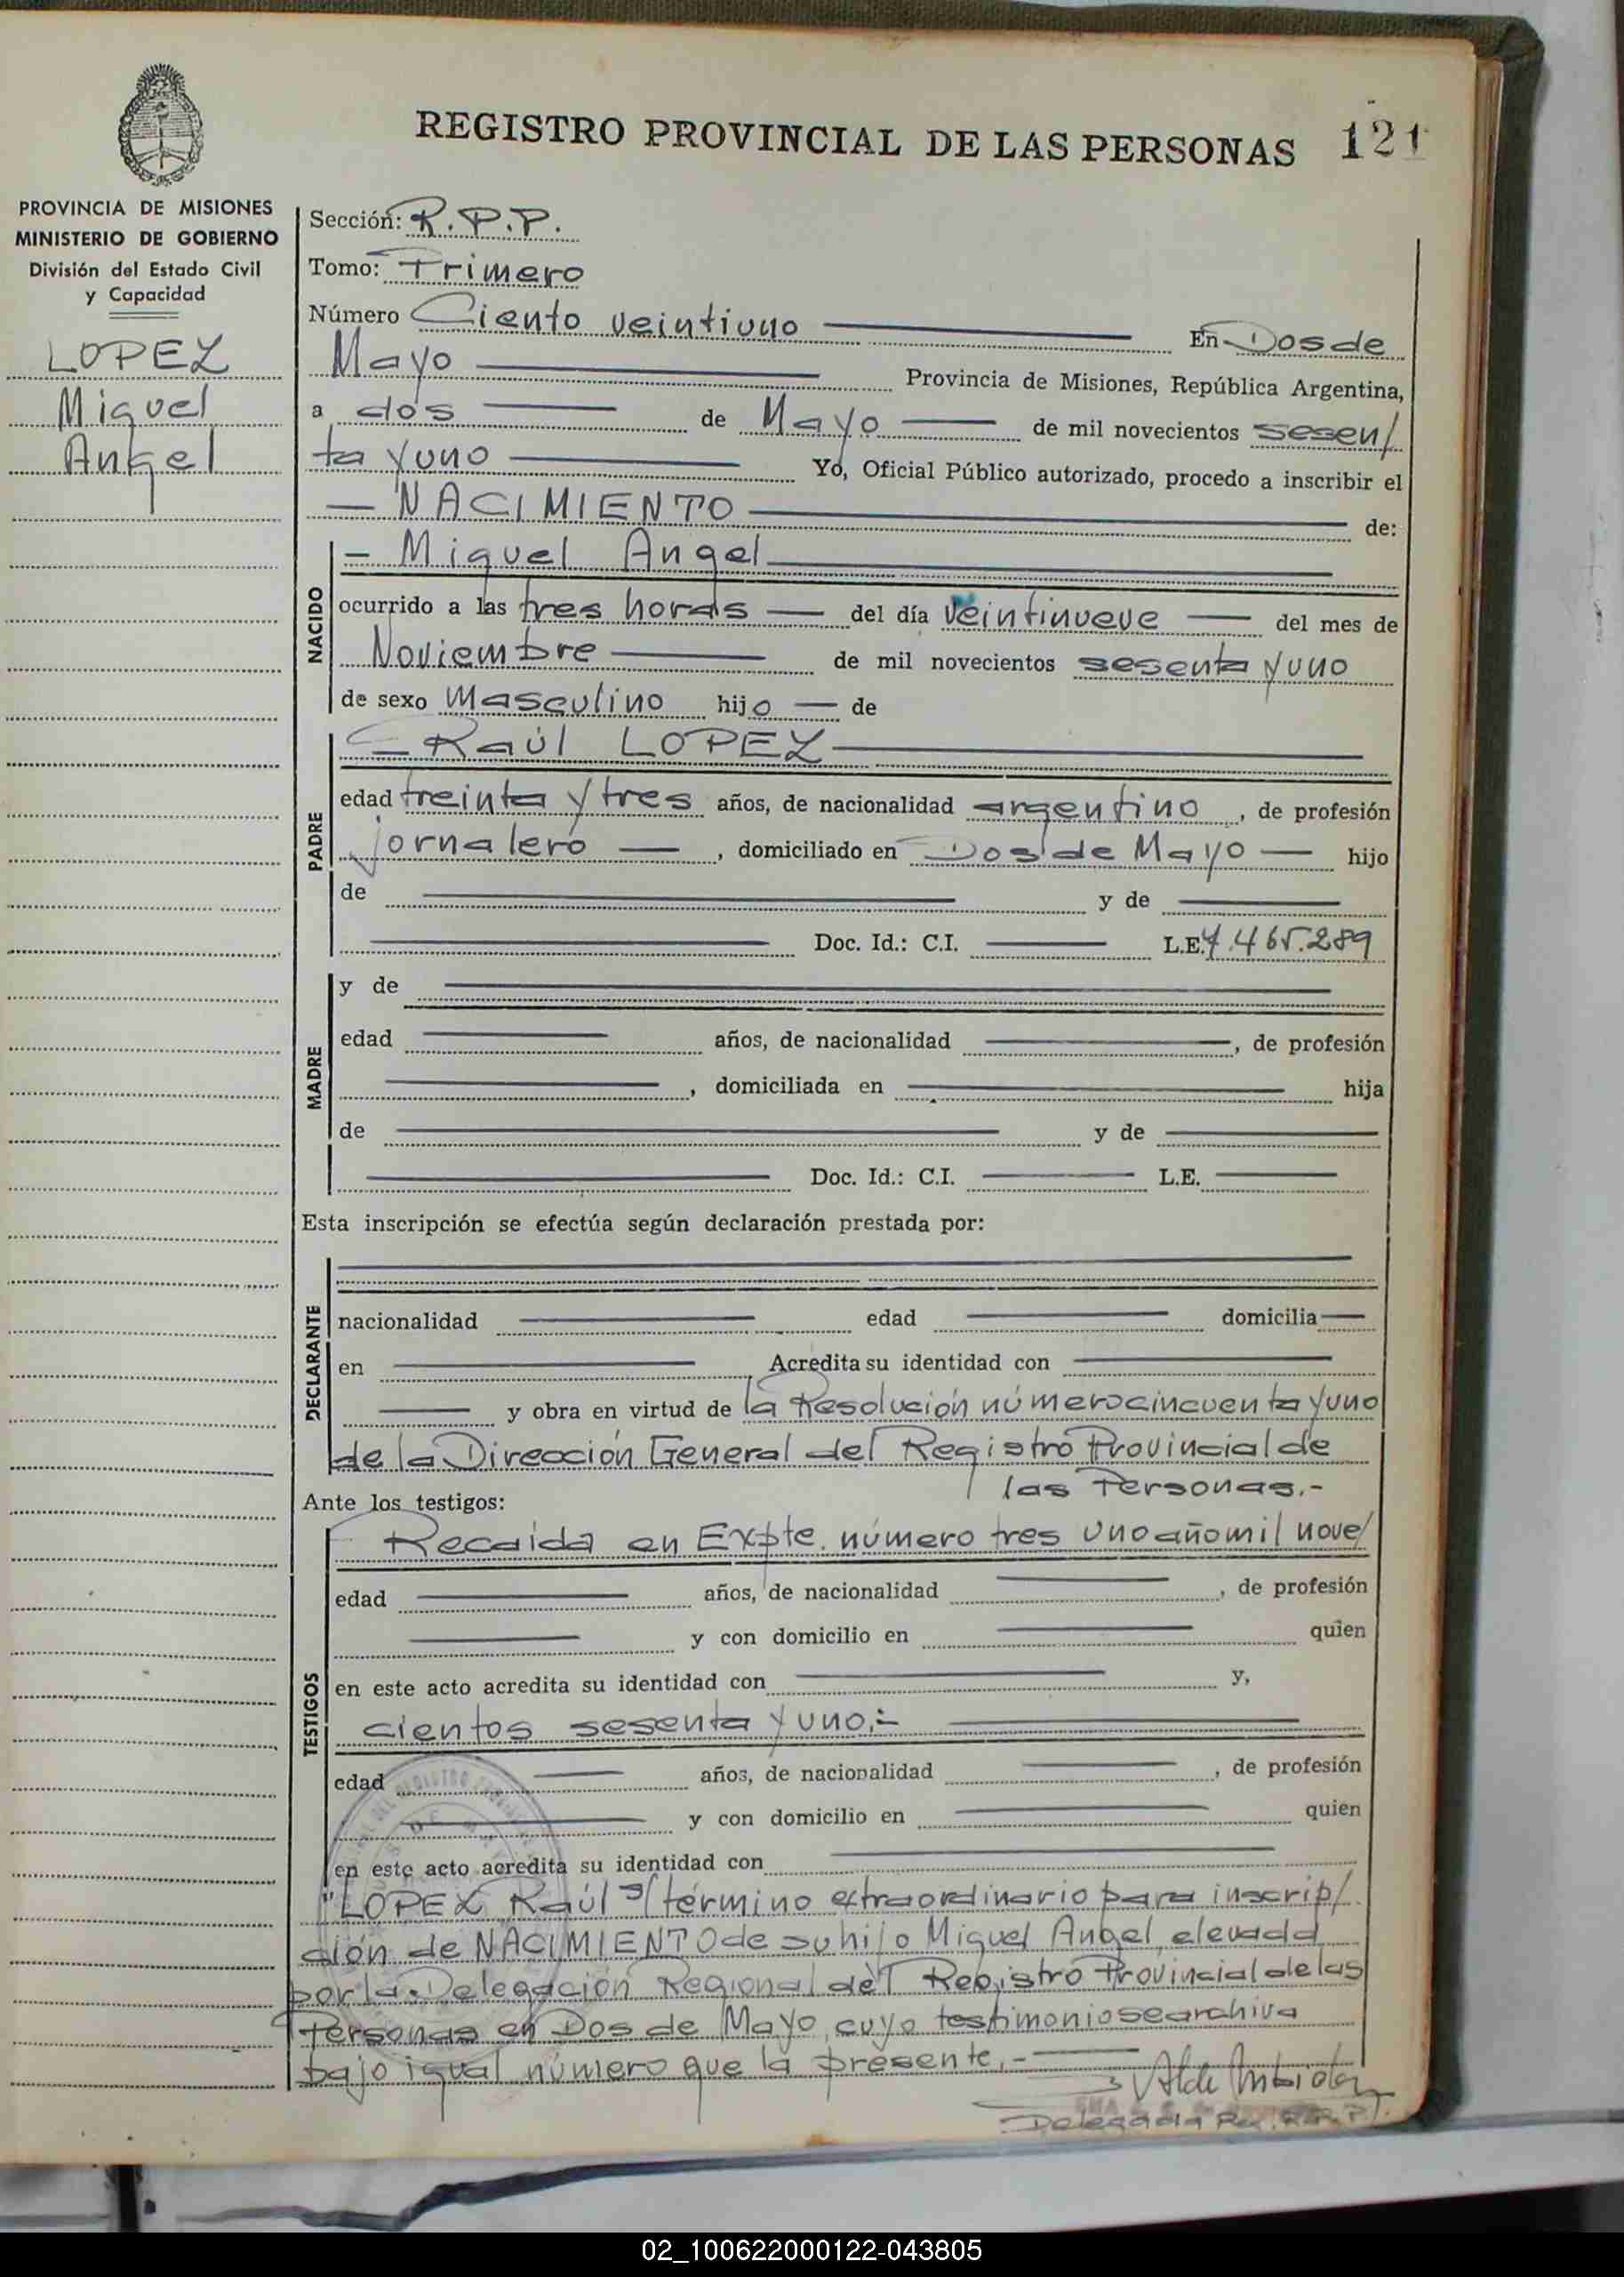 REGISTRO PROVINCIAL DE LAS PERSONAS 121
PROVINCIA DE MISIONES
MINISTERIO DE GOBIERNO
División del Estado Civil
y Capacidad
LOPEZ
Miguel
Angel
Sección: R.P.P.
Tomo: Primero
Número Ciento veintiuno En Dos de
Mayo Provincia de Misiones, República Argentina,
a dos de Mayo de mil novecientos sesen/
ta y uno Yo, Oficial Público autorizado, procedo a inscribir el
NACIMIENTO de:
NACIDO
Miguel Angel
ocurrido a las tres horas del día veintinueve del mes de
Noviembre de mil novecientos sesenta y uno
de sexo Masculino hijo de
PADRE
Raúl LOPEZ
edad treinta y tres años, de nacionalidad argentino, de profesión
jornalero, domiciliado en Dos de Mayo hijo
de y de
Doc. Id.: C.I. L.E. 7.465.289
MADRE
y de
edad años, de nacionalidad , de profesión
, domiciliada en hija
de y de
Doc. Id.: C.I. L.E.
Esta inscripción se efectúa según declaración prestada por:
DECLARANTE
nacionalidad edad domicilia
en Acredita su identidad con
y obra en virtud de la Resolución número cincuenta y uno
de la Dirección General del Registro Provincial de
las Personas.-
Ante los testigos:
TESTIGOS
Recaída en Expte. número tres uno año mil nove/
edad años, de nacionalidad , de profesión
y con domicilio en quien
en este acto acredita su identidad con y,
cientos sesenta y uno.-
edad años, de nacionalidad , de profesión
y con domicilio en quien
en este acto acredita su identidad con
"LOPEZ Raúl s/término extraordinario para inscrip/
ción de NACIMIENTO de su hijo Miguel Angel, elevada
por la Delegación Regional del Registro Provincial de las
Personas en Dos de Mayo, cuyo testimonio se archiva
bajo igual número que la presente.-
Delegada Reg. R.P.P.
02_100622000122-043805